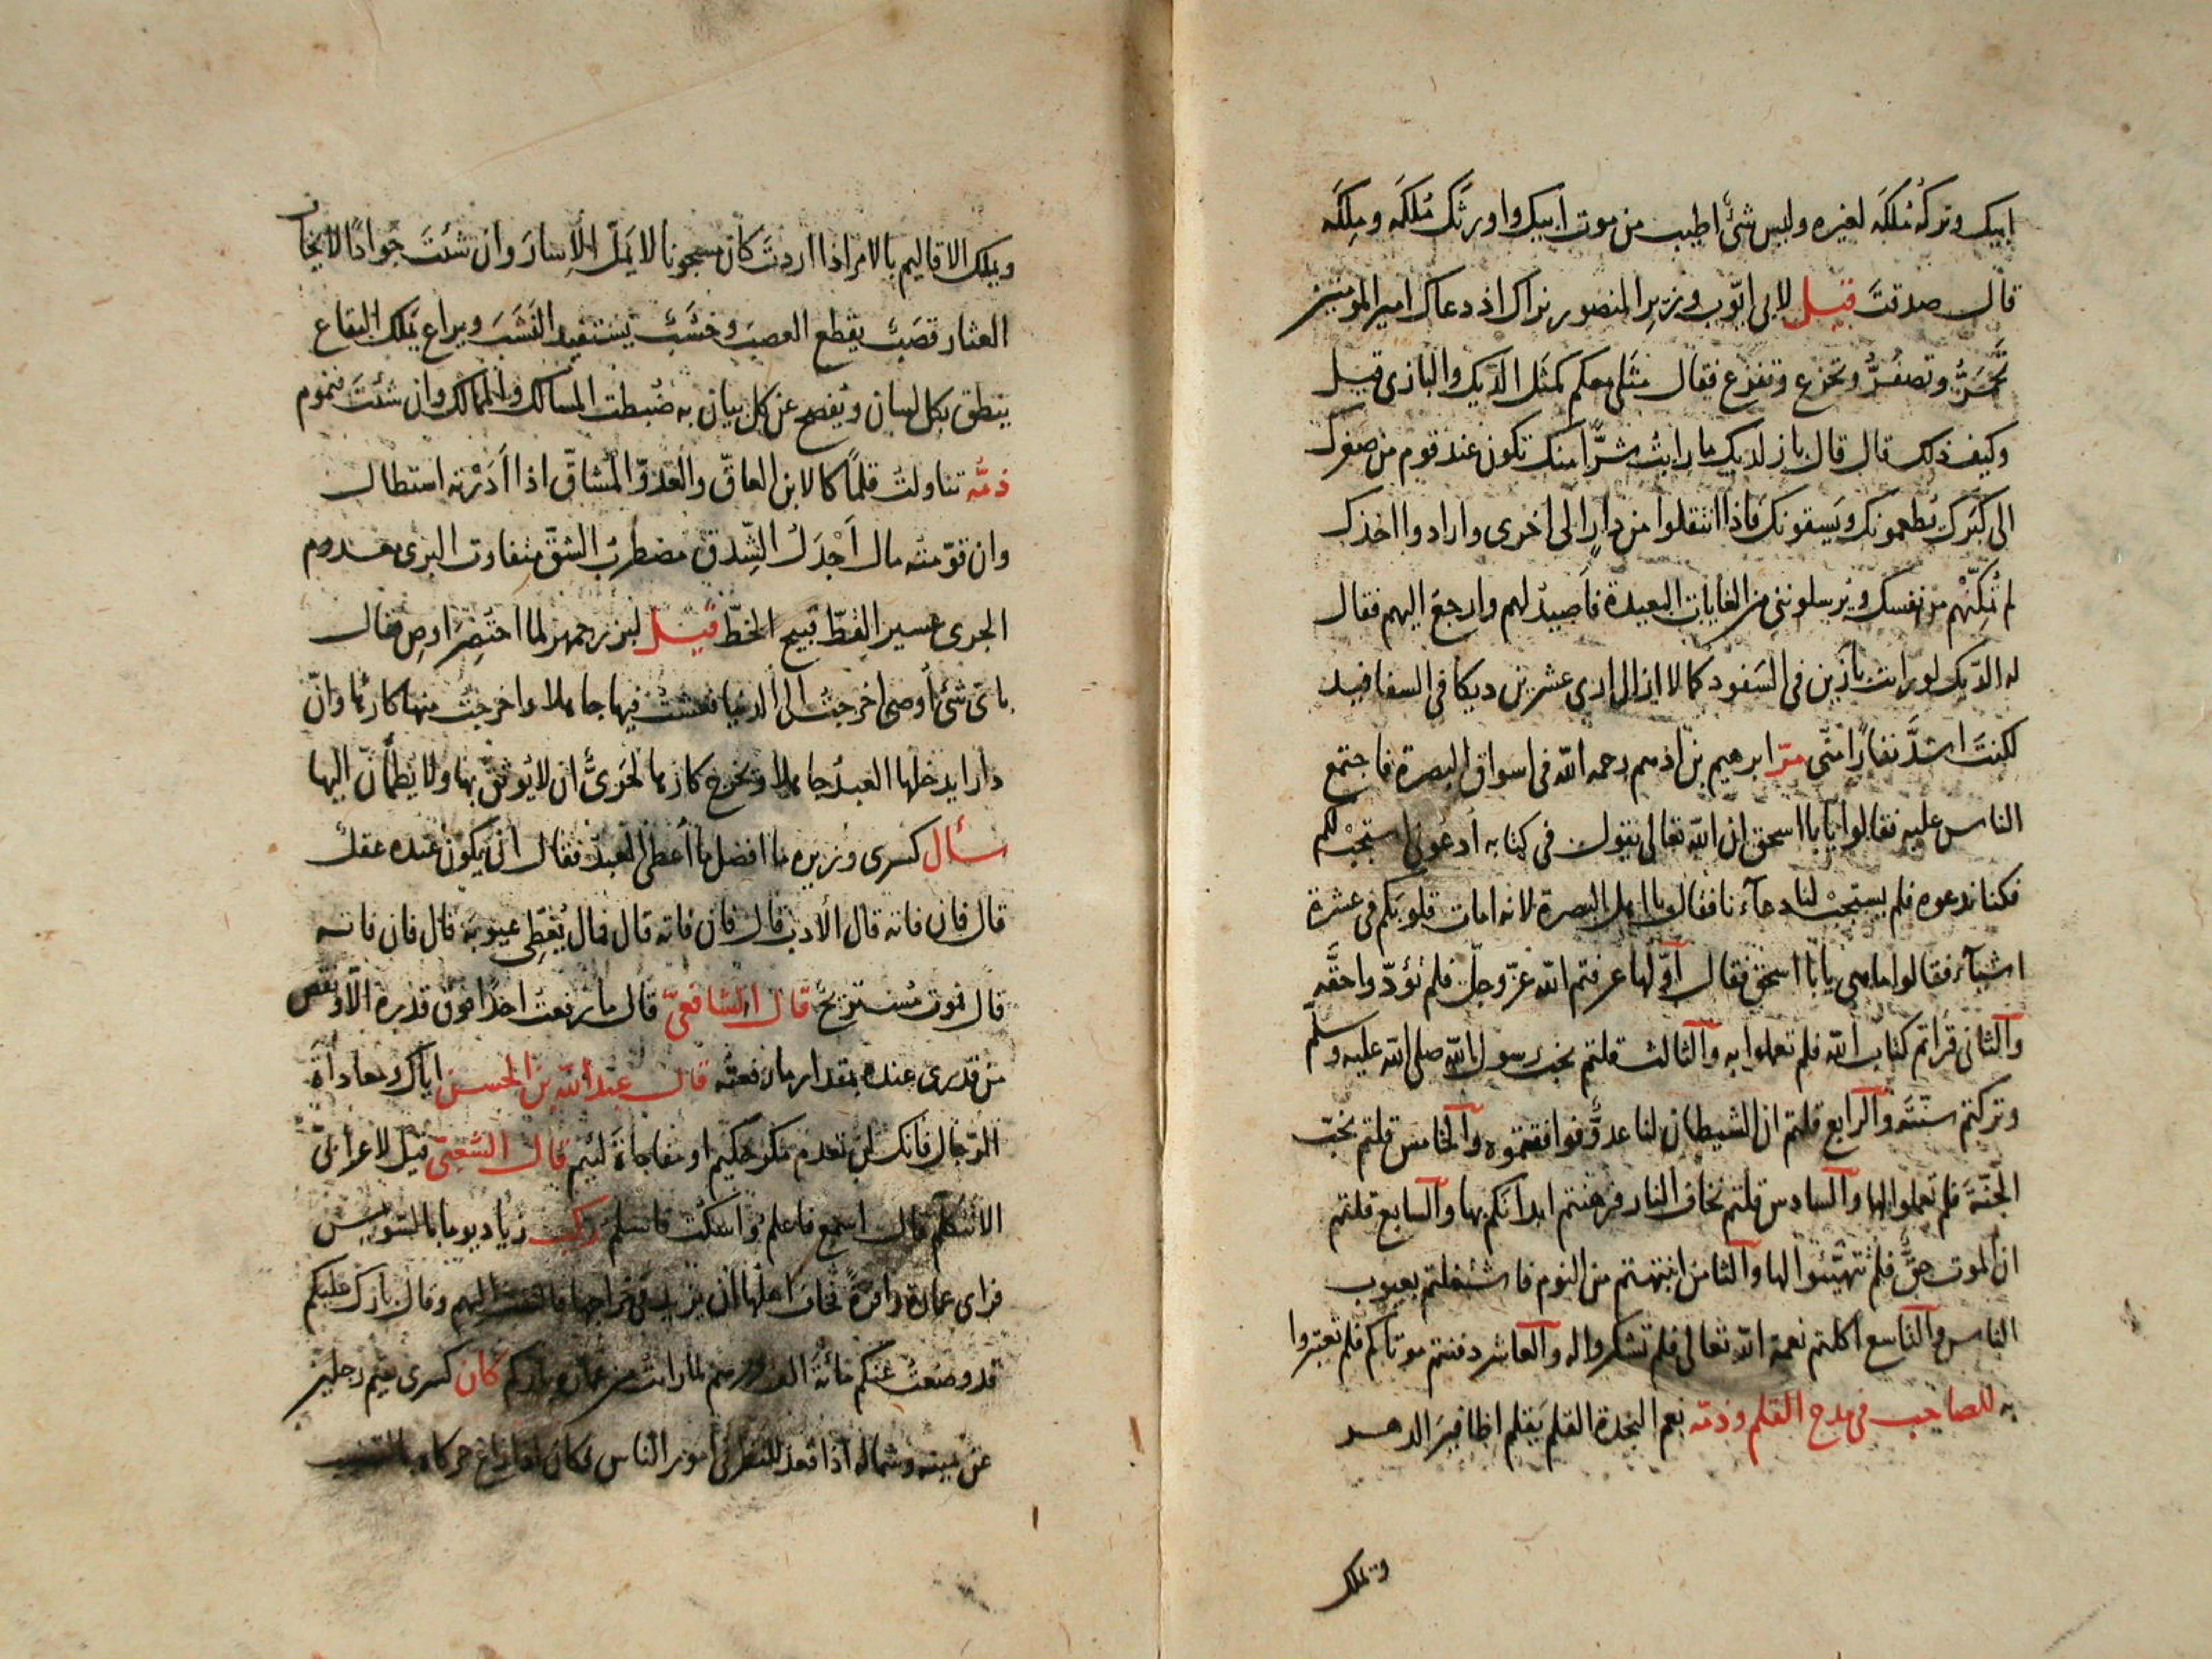 ابيك وتركهُ مُلكَه لغيره وليس شئ اطيب من موت ابيك واورثك مُلكَه ومِلكَه
قال صدقتَ قيل لابى ايّوب وزير المنصور نراك اذ دعاك امير المومنين
تَحمَرُّ وتصفُرُّ وتجزع وتفزع فقال مَثَلى معكم كمثَل الدّيك والبازى قيل
وكيف ذلك قال قال باز لديك ما رايتُ شرًّا منك تكون عند قوم من صغرك
الى كبَرك يُطعمونك ويَسقونك فاذا انتقلوا من دارٍ الى اخرى وارادوا اخذك
لم تُمكِنْهُم من نفسك ويُرسلوننى من الغايات البعيدة فاَصيدُ لهم وارجعُ اليهم فقال
له الدّيك لو رايت بازيين فى السَفود كما لا ازال ارى عشرين ديكا فى السفافيد
لكنتَ اشدَّ نفارًا منّى مرّ ابرهيم بن ادهم رحمه الله فى اسواق البصرة فاجتمع
الناس عليه فقالوا يا با اسحق ان الله تعالى يقول فى كتابه ادعونى استجبْ لكم
فكنا ندعوه فلم يستجبْ لنا دعآءنا فقال يا اهل البصرة لانه اماتَ قلوبَكم فى عشرة
اشيآء فقالوا ما هى يا با اسحق فقال اوّلها عرفتم الله عزّ وجلّ فلم تؤدّوا حقَّه
والثانى قرأتم كتاب الله فلم تعملوا به والثالث قلتم نحب رسول الله صلى الله عليه وسلم
وتركتم سنّتَه والرابع قلتم ان الشيطان لنا عدوٌّ فوافقتموه والخامس قلتم نحبّ
الجنّةَ فلم تعملوا لها والسادس قلتم نخاف النار فرهنتم ابدانَكم بها والسابع قلتم
ان الموت حقٌّ فلم تتهيّئوا لها والثامن انتبهتم من النوم فاشتغلتم بعيوب
الناس والتاسع اكلتم نعمة الله تعالى فلم تشكروا له والعاشر دفنتم موتاكم فلم تعتبروا
به للصاحب فى مدح القلم وذمّه نعم النجدة القلم يَقلم اظافيرَ الدهر
وتملك
ويملك الاقاليم بالامر اذا اردتَ كان مسجونا لا يَمَلّ الاِسارَ وان شئتَ جَوادًا لا يخاف
العثار قصَبٌ يقطع العصبَ وخشَبٌ يستفيد النَشَبَ ويراع يَملك البقاع
ينطق بكل لسان ويُفصح عن كل بيان به ضُبطت المسالك والممالك وان شئتَ فنموم
ذمُّه تناولتُ قلمًا كالابن العاقّ والعَدوّ المُشاقّ اذا اَدَرْتُه استطال
وان قوّمتُه مال اَجْدَلُ الشِدق مضطربُ الشقّ متفاوت البرى معدوم
الجرى عسير القطّ قبيح الخطّ قيل لبزرجمهر لما احتُضِرَ اوصِ فقال
باىّ شئ أوصى اخرجتُ الى الدنيا فعشتُ فيها جاهلا واخرجتُ منها كارهًا وانّ
دارا يدخلها العبدُ جاهلا ويخرج كارها لحَرِىٌّ ان لا يُوثَق بها ولا يُطمأنّ اليها
سأل كسرى وزيره ما افضل ما أعطى العبدُ فقال ان يكون عنده عقل
قال فان فاته قال الادب قال فان فاته قال فمال يُغطِّى عيوبَه قال فان فاته
قال فموت مُستريحٌ قال الشافعىّ قال ما رفعتُ احدًا فوق قدره الّا ونقص
من قدرى عنده بمقدار ما رفعتُه قال عبد الله بن الحسن اياك ومعاداةَ
الرّجال فانك لن تعدم مكرَ حكيم او مفاجاةَ لئيم قال الشَعبىّ قيل لاعرابىّ
الا تتكلّم قال اسمع فاعلم واسكت فاسلم ركب زياد يوما بالسّوس
فراى عمارة وافرةً فخاف اهلُها ان يزيد فى خراجها فالتفت اليهم وقال بارك عليكم
قد وضعتُ عنكم مائةَ الف درهم لما رايت من عمارة بلدكم كان كسرى يقيم رجلين
عن يمينه وشماله اذا قعد للنظر فى امور الناس فكان اذا زاغ حركاه